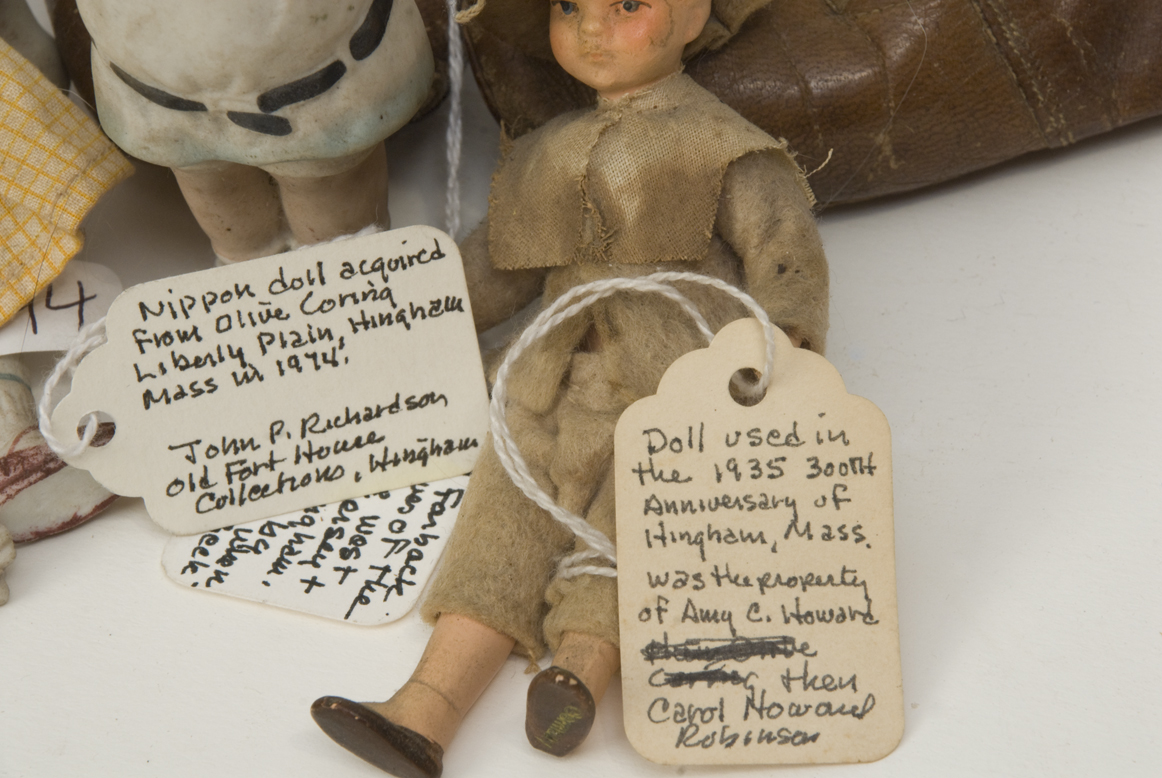 14
Nippon doll acquired
from Olive Coring
Liberly Plain, Hingham
Mass in 1974.
John P. Richardson
Old Fort House
Collections, Hingham
far back
of the
west
ersey +
by
ngham.
when
eek.
Doll used in
the 1935 300TH
Anniversary of
Hingham, Mass.
was the property
of Amy C. Howard
then
Carol Howard
Robinson